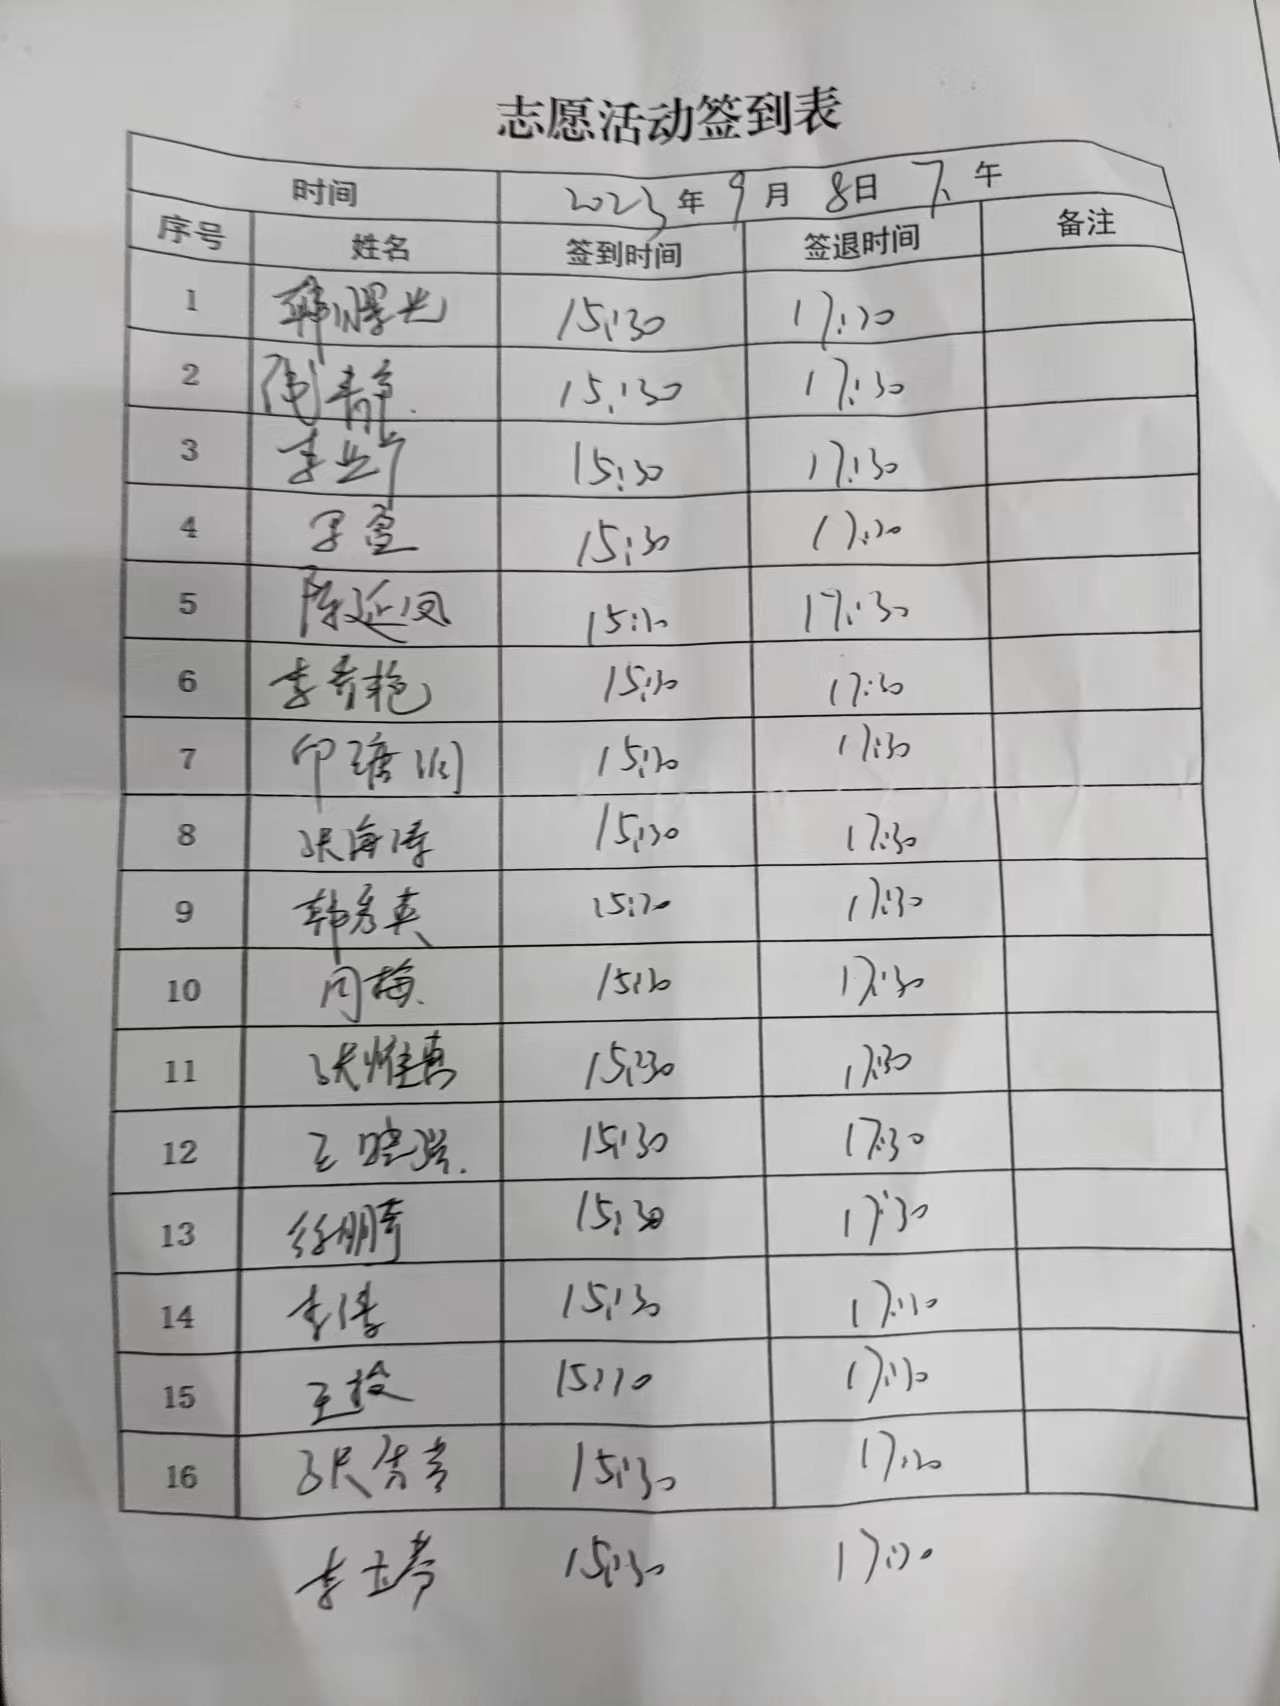 志愿活动签到表
时间 2023年9月8日 下午
序号 姓名 签到时间 签退时间 备注
1 韩曙光 15:30 17:30
2 陶静 15:30 17:30
3 李业宁 15:30 17:30
4 15:30 17:30
5 陈延凤 15:30 17:30
6 李秀艳 15:30 17:30
7 15:30 17:30
8 张海涛 15:30 17:30
9 韩秀英 15:30 17:30
10 闫梅 15:30 17:30
11 张维嘉 15:30 17:30
12 王晓强 15:30 17:30
13 徐鹏 15:30 17:30
14 李倩 15:30 17:30
15 王 15:30 17:30
16 张 15:30 17:30
李 15:30 17:30